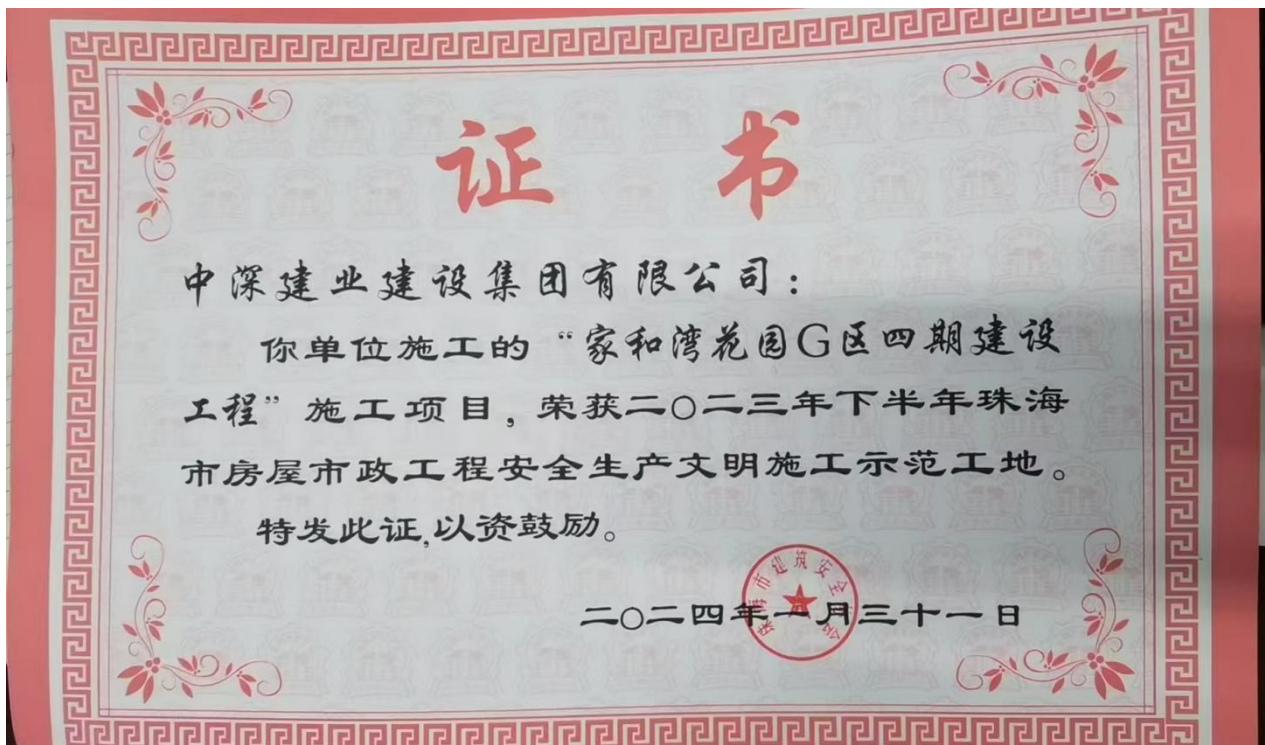 证书
中深建业建设集团有限公司：
你单位施工的“家和湾花园G区四期建设
工程”施工项目，荣获二〇二三年下半年珠海
市房屋市政工程安全生产文明施工示范工地。
特发此证,以资鼓励。
珠海市建筑安全
二〇二四年一月三十一日